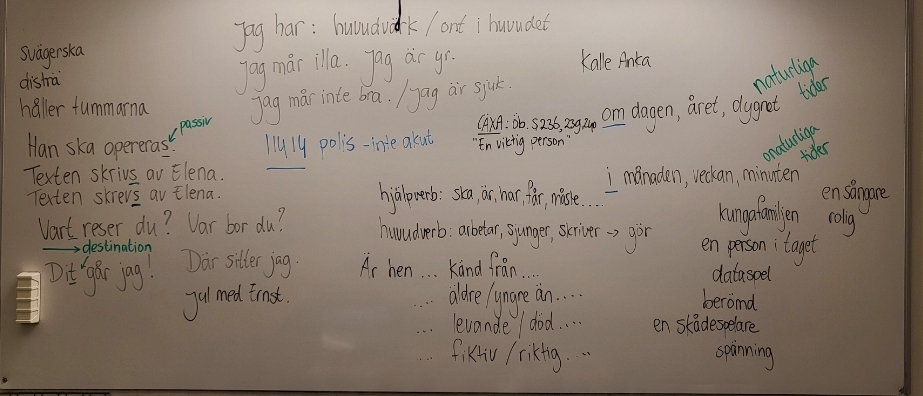 Svägerska
disträ
håller tummarna
Han ska opereras.
passiv
Texten skrivs av Elena.
Texten skrevs av Elena.
Vart reser du? Var bor du?
destination
Dit går jag! Där sitter jag.
Jul med Ernst.
Jag har: huvudvärk / ont i huvudet
Jag mår illa. Jag är yr.
Jag mår inte bra. / Jag är sjuk.
11414 polis - inte akut
Kalle Anka
LÄXA: Öb. S 236, 239, 240
"En viktig person"
naturliga
tider
om dagen, året, dygnet
onaturliga
tider
i månaden, veckan, minuten
hjälpverb: ska, är, har, får, måste....
huvudverb: arbetar, sjunger, skriver → gör
Är hen ... känd från ....
... äldre / yngre än ....
... levande / död ....
... fiktiv / riktig ....
en sångare
kungafamiljen
rolig
en person i taget
dataspel
berömd
en skådespelare
spänning